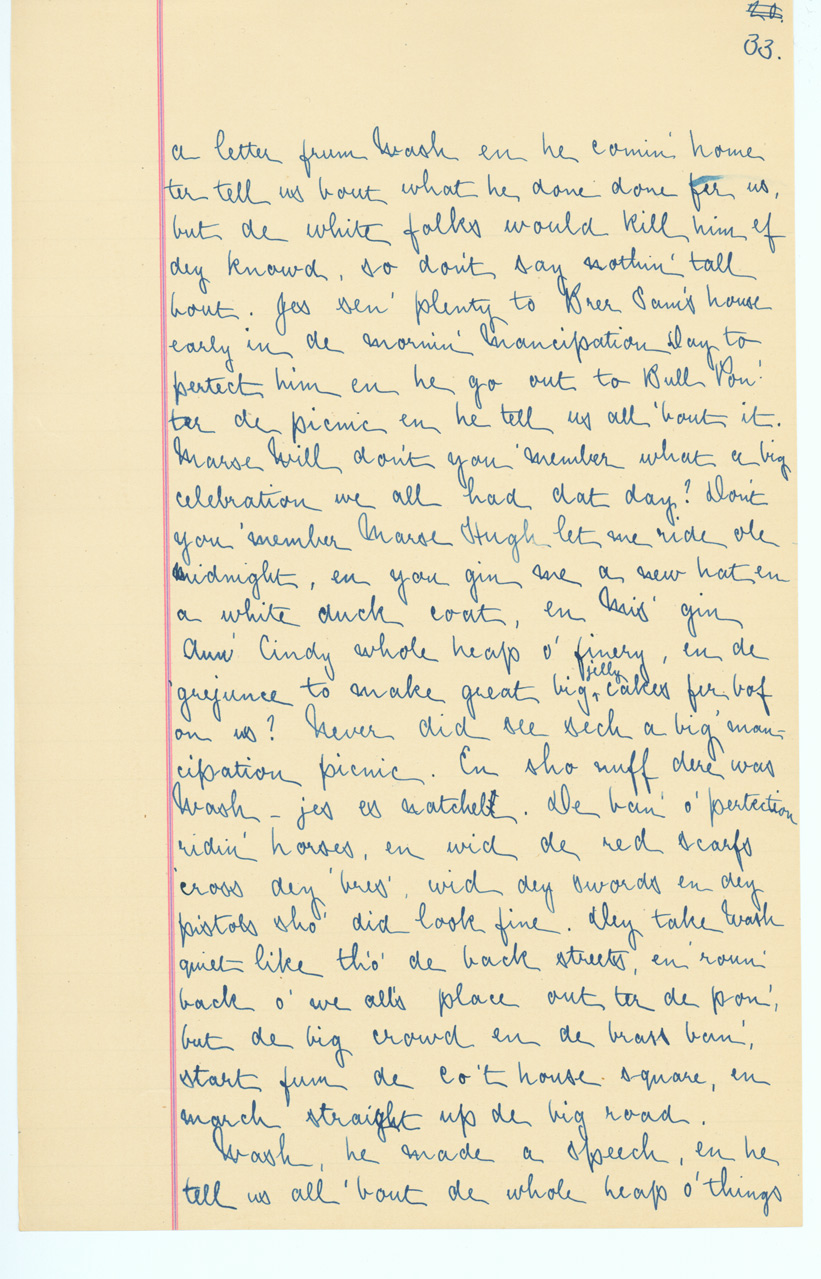 33.
a letter frum Wash en he comin' home
ter tell us bout what he done done fer us,
but de white folks would kill him ef
dey knowd, so don't say nothin' tall
bout. Jes sen' plenty to Brer Sam's house
early in de mornin' Mancipation Day to
pertect him en he go out to Bull Pon'
ter de picnic en he tell us all 'bout it.
Marse Will don't you 'member what a big
celebration we all had dat day? Don't
you 'member Marse Hugh let me ride ole
midnight, en you gin me a new hat en
a white duck coat, en Mis' gin
Aun' Cindy whole heap o' finery, en de
'grejunce to make great big, jelly cakes fer bof
on us? Never did see sech a big 'man-
cipation picnic. En sho nuff dere was
Wash - jes es natchel. De ban' o' pertection
ridin' horses, en wid de red scarfs
'cross dey 'bres', wid dey swords en dey
pistols sho' did look fine. Dey take Wash
quiet like tho' de back streets, en 'roun'
back o' we all's place out ter de pon',
but de big crowd en de brass ban',
start fum de co't house square, en
march straight up de big road.
Wash, he made a speech, en he
tell us all 'bout de whole heap o' things